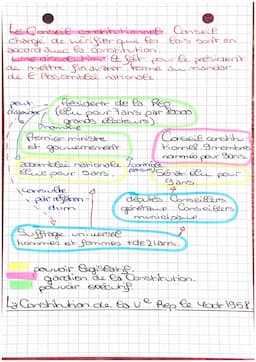 Le Conseil constitutionnel Conseil
chargé de vérifier que les lois soit en
accord avec la constitution.
Une dissolution le fait pour le président
de mettre fin avant terme au mandat
de l'Assemblée nationale.
peut
dissoudre
Président de la Rép
(élu pour 7 ans par 80000
grands électeurs)
nomme
Premier ministre
et gouvernement
Conseil constitu
tionnel 9 membres
nommé pour 9 ans.
assemblée nationale
élue pour 5 ans.
Sénat élu pour
9 ans
consulte
par référen
dum
députés Conseillers
généraux Conseillers
municipaux.
Suffrage universel
hommes et femmes + de 21 ans.
pouvoir législatif.
gardien de la Constitution.
pouvoir exécutif
La Constitution de la Ve Rép le 4 oct 1958.